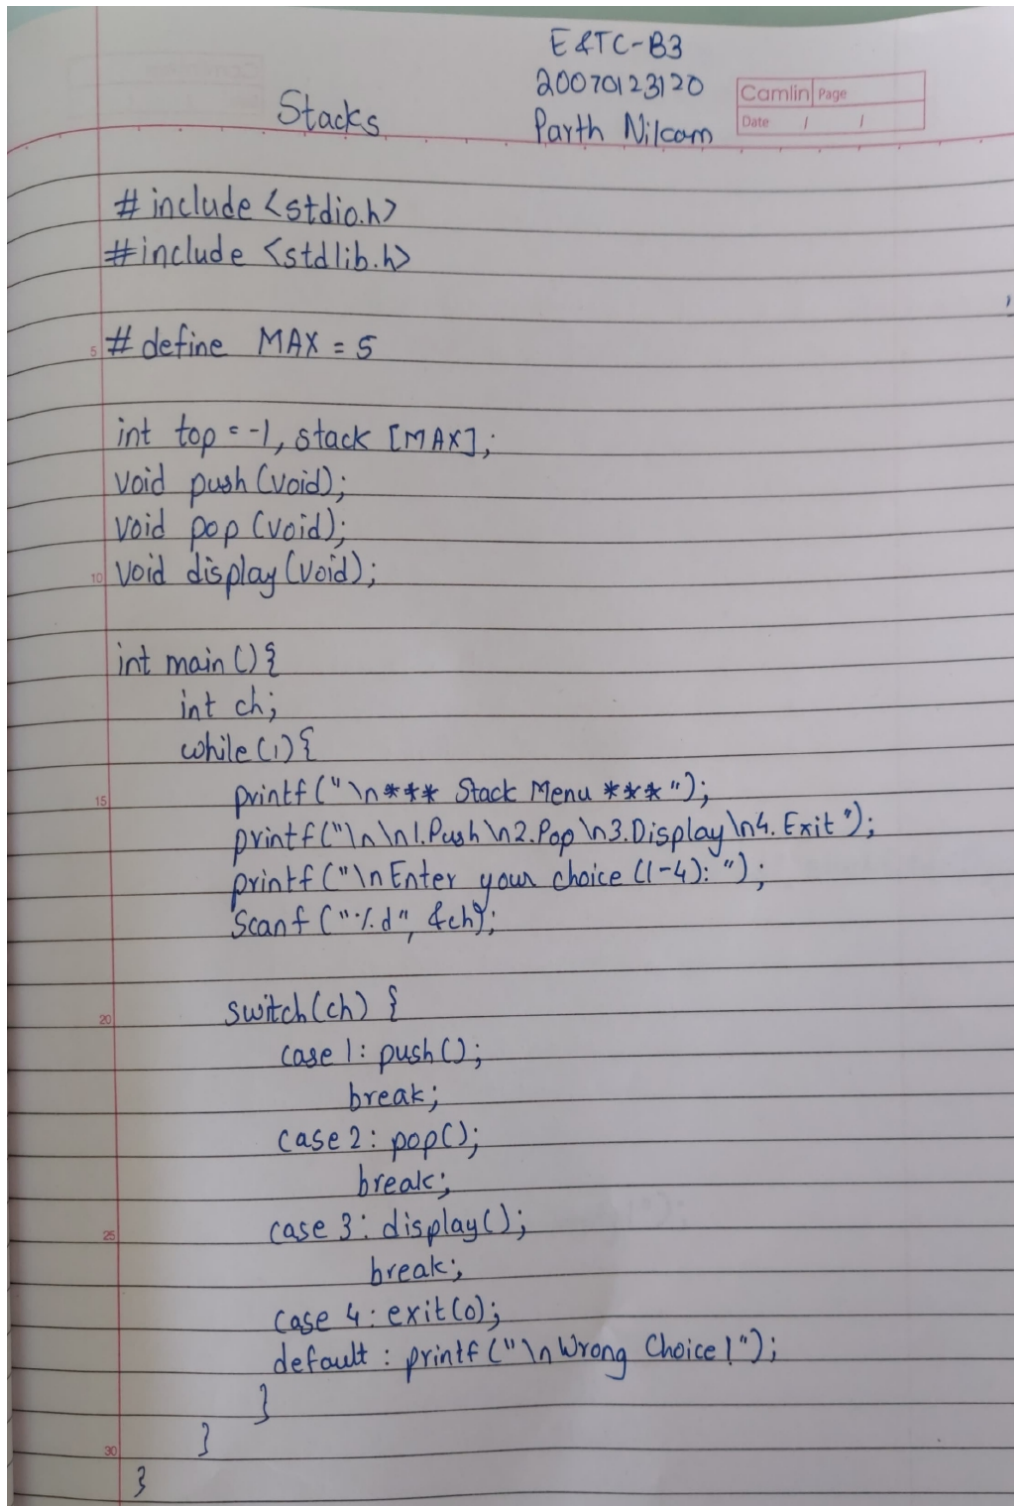 E&TC-B3
20070123120
Stacks
Parth Nilcam
Camlin Page
Date / /
# include <stdio.h>
#include <stdlib.h>
5 # define MAX = 5
int top = -1, stack [MAX];
void push (void);
void pop (void);
10 void display (void);
int main () {
int ch;
while (1) {
15 printf ("\n*** Stack Menu ***");
printf ("\n\n1.Push\n2.Pop\n3.Display\n4. Exit");
printf ("\nEnter your choice (1-4): ");
Scanf ("%d", &ch);
20 switch (ch) {
case 1: push ();
break;
case 2: pop();
break;
25 case 3: display ();
break;
case 4: exit(0);
default : printf ("\n Wrong Choice!");
}
30 }
}